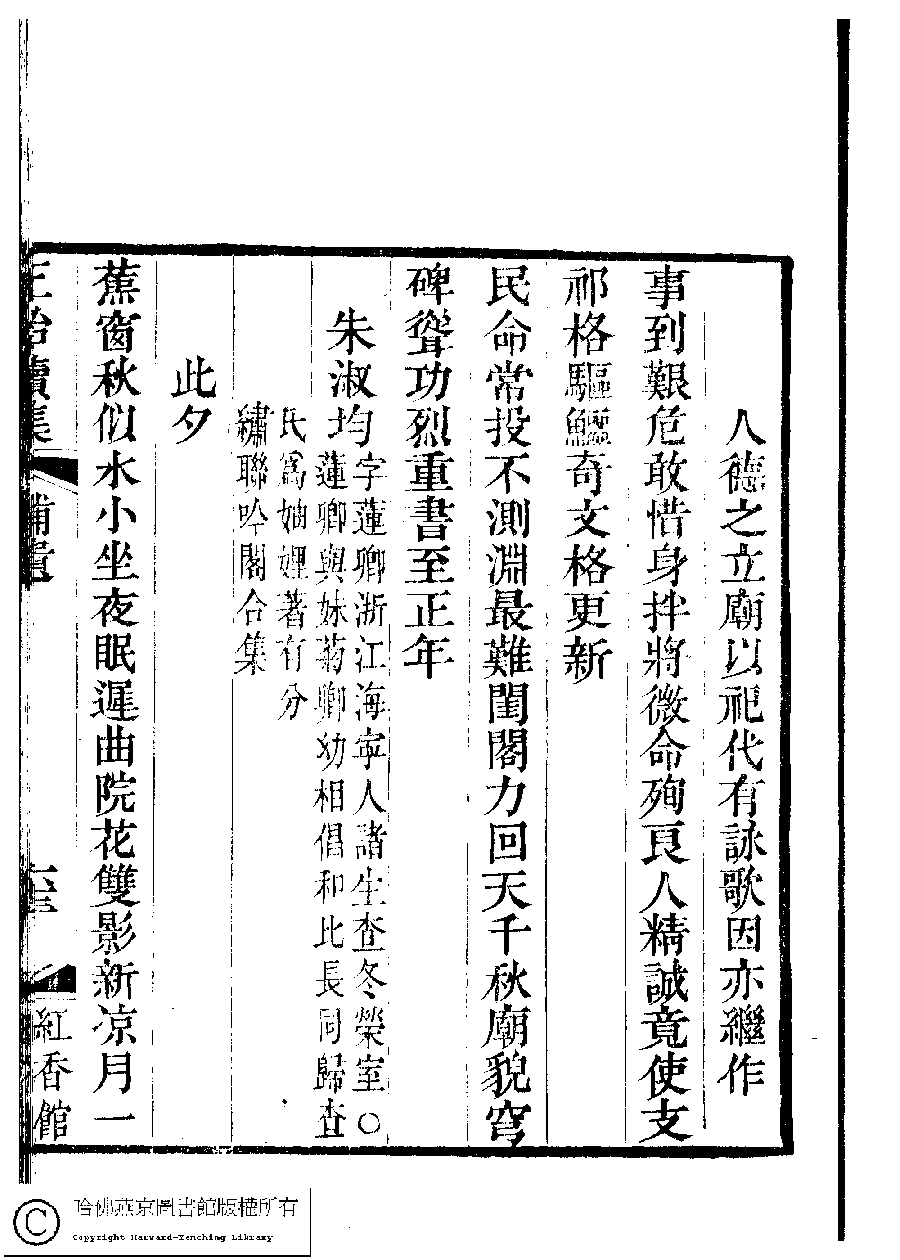 人德之立廟以祀代有詠歌因亦繼作
事到艱危敢惜身拌將微命殉良人精誠竟使支
祁格驅鱷奇文格更新
民命常投不測淵最難閨閣力回天千秋廟貌穹
碑聳功烈重書至正年
朱淑均
字蓮卿浙江海寧人諸生查冬榮室〇
蓮卿與妹菊卿幼相倡和比長同歸查
氏爲妯娌著有分
繡聯吟閣合集
此夕
蕉窗秋似水小坐夜眠遲曲院花雙影新凉月一
正始續集
補遺
紅香館
哈佛燕京圖書館版權所有
Copyright Harvard-Yenching Library